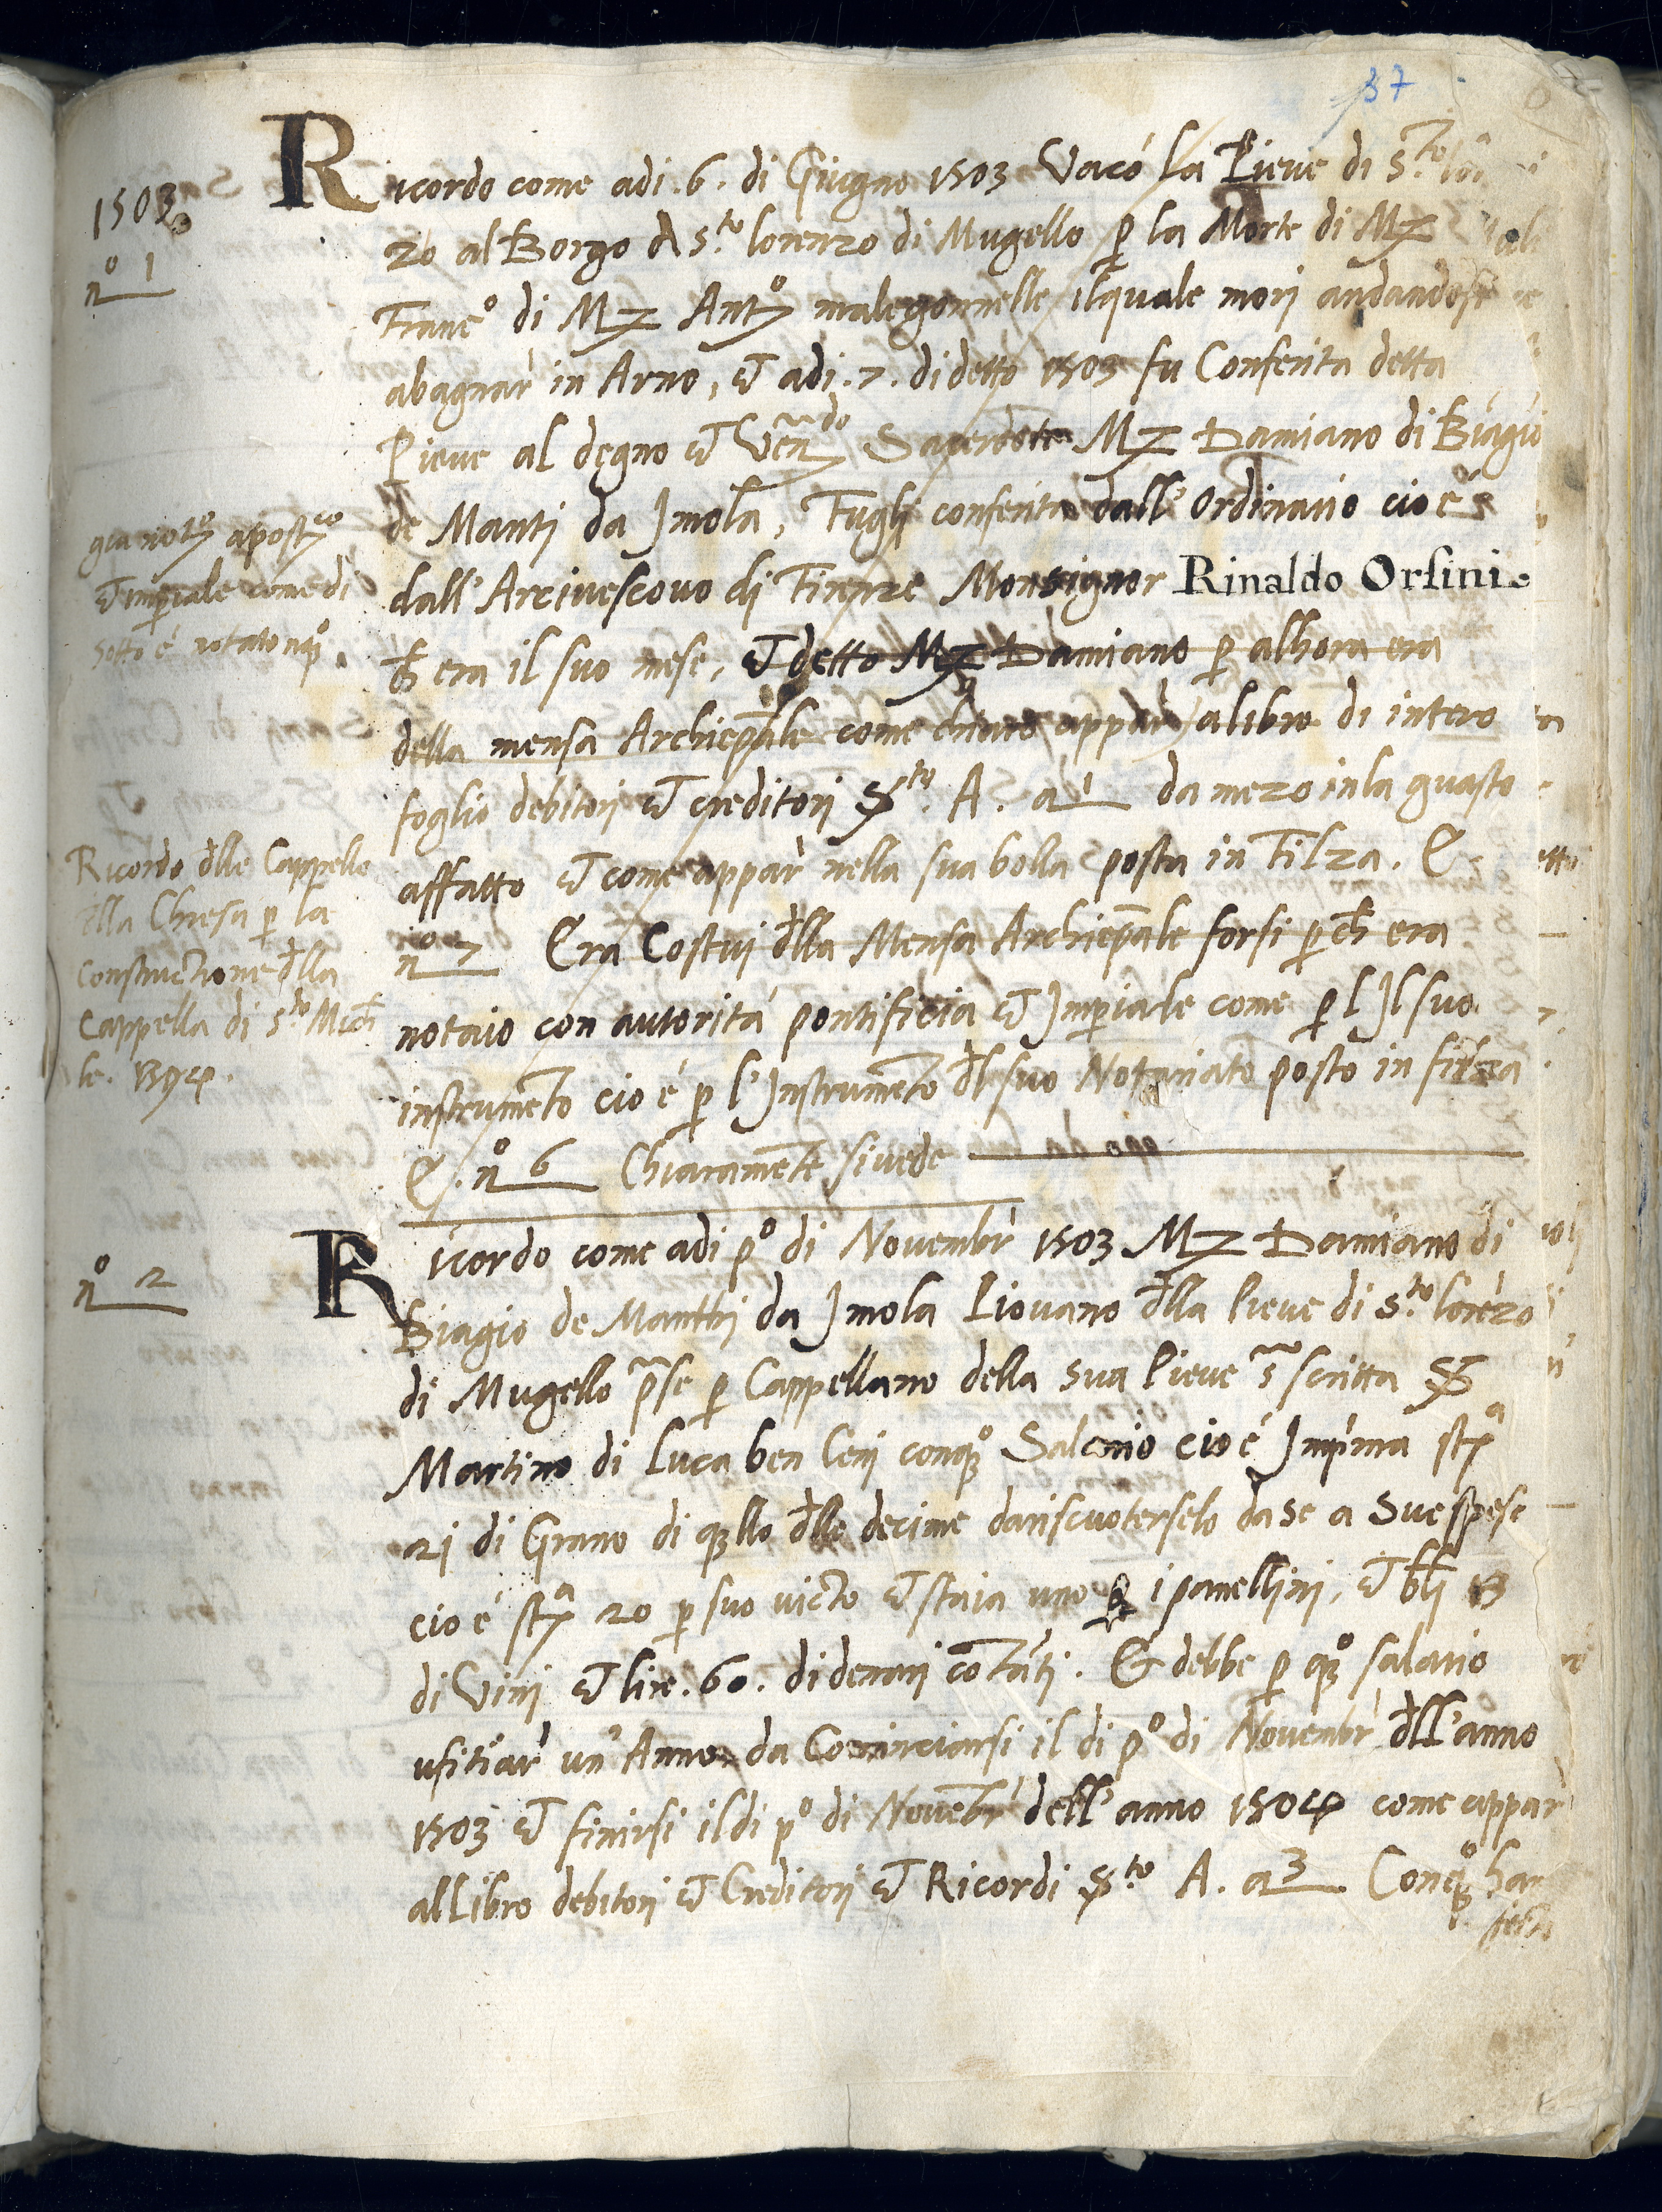 37
1503
nº 1
Ricordo come adi .6. di Giugno 1503 Vacó la Pieve di S.to
zo al Borgo A s.to lorenzo di Mugello p la Morte di Mz
Francº di Mz Antº malegonnelle ilquale mori andandosi
abagnar in Arno, et adi .7. didetto 1503 fu Conferita detta
Pieve al degno et Vēn.do Sacerdote Mz Damiano di Biagio
de Manti da Jmola, Fugli conferita dall' Ordinario cio é
dall' Arcivescovo di Firenze Monsignor Rinaldo Orsini.
ch era il suo mese, et detto Mz Damiano p alhora era
della mensa Archiepāle come chiaro appar alibro di intero
foglio debitori et creditori S.to A. a 1 da mezo inla guasto
affatto et come appar nella sua bolla posta in Filza. C
nº 7 Era Costui dlla Mensa Archiepāle forsi p ch era
notaio con autoritá pontificia et Jmpiale come p l Jl suo
instrumēto cio é p l'Jnstrumēto dl suo Notariato posto in filza
C. nº 6 Chiaramēte sivede
gia notº apostco
et impiale come di
sotto é notato nqº.
Ricordo dlle Cappelle
dlla Chiesa p la
Constructione dlla
Cappella di s.to Mich
le. 1394.
nº 2
Ricordo come adi pº di Novembr 1503 Mz Damiano di
Biagio de Manthi da Jmola Piovano dlla Pieve di s.to lorēzo
di Mugello p̄se p Cappellano della sua Pieve s̄scritta S
Martino di Luca ben Ceni conqº Salario cio é Jmpima stª
21 di Grano di qllo dlle decime dariscuoterselo da se a Sue spese
cio é stª 20 p suo victo et staia uno p i panellini, et bli 13
di Vini et lire .60. didenari cōtāti. Et debbe p qº salario
ufitiar un' Anno da Cominciarsi il di pº di Novembr dll'anno
1503 et finirsi ildi pº di Novēbr dell'anno 1504 come appar
alLibro debitori et Creditori et Ricordi S.to A. a 3 Conqº